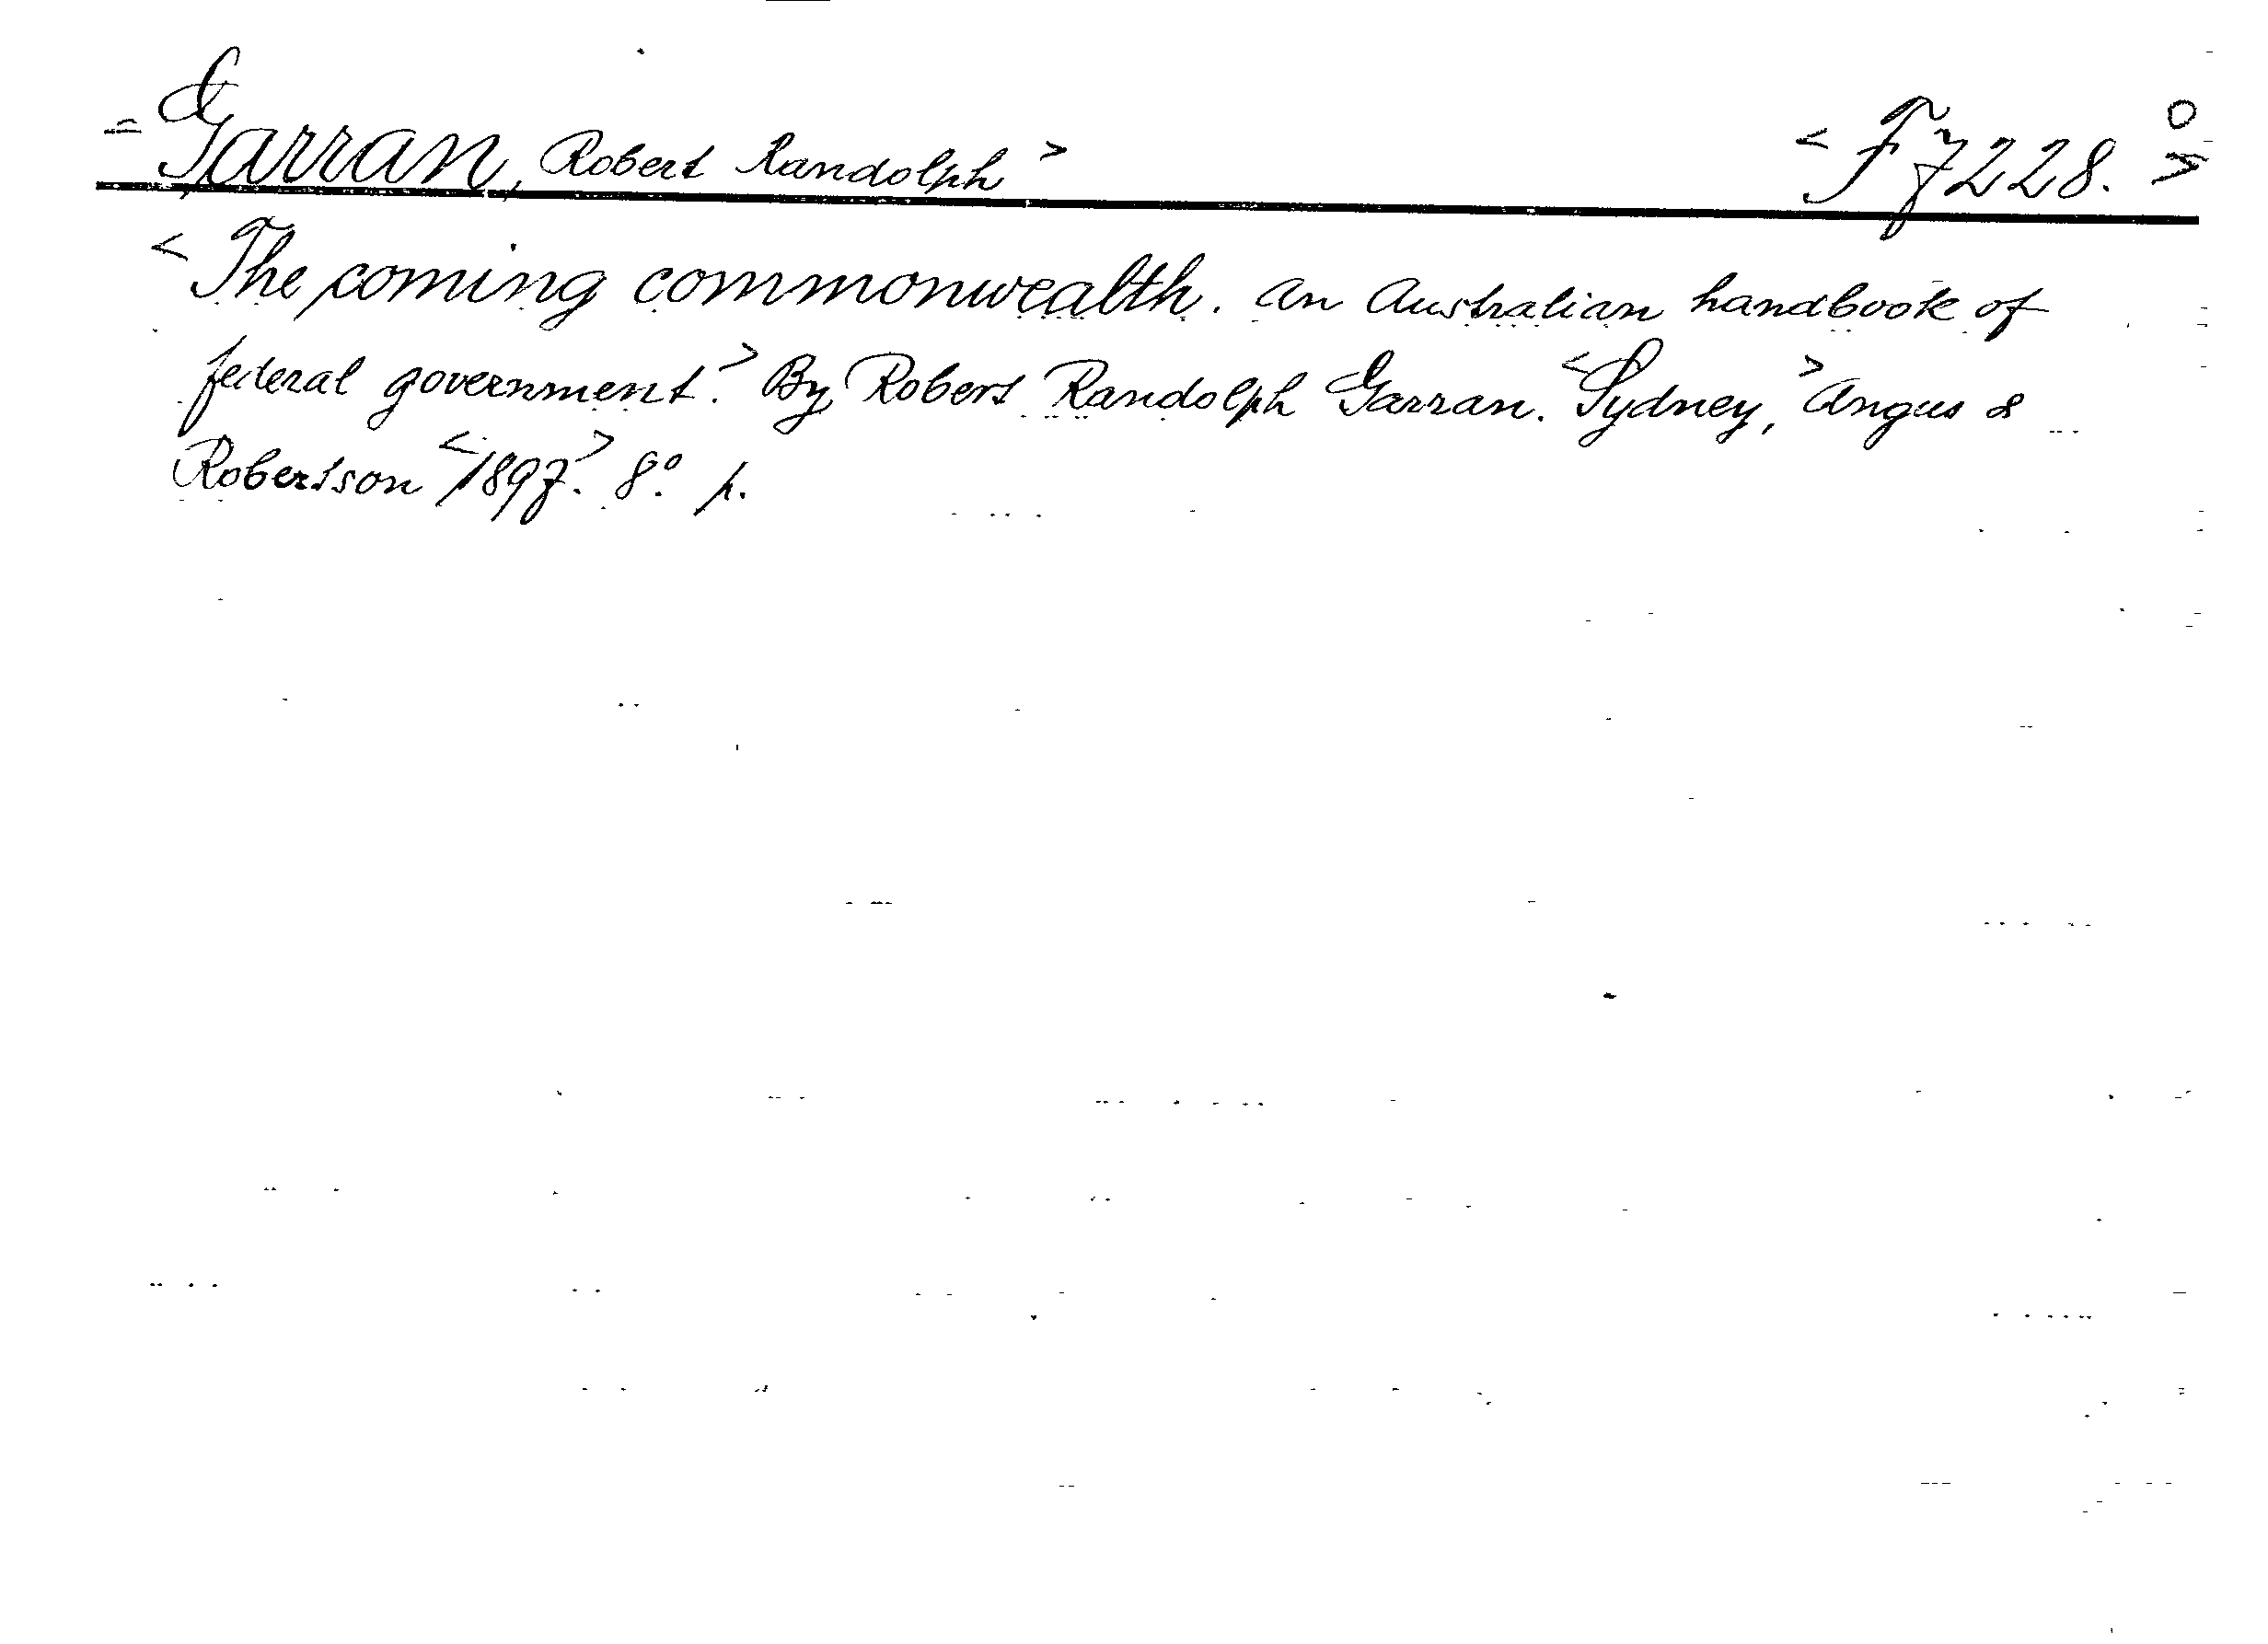 = Garran, Robert Randolph > < F 7228. o >
< The coming commonwealth. An Australian handbook of
federal government.> By Robert Randolph Garran. <Sydney,> Angus &
Robertson <1897.> 8.º p.